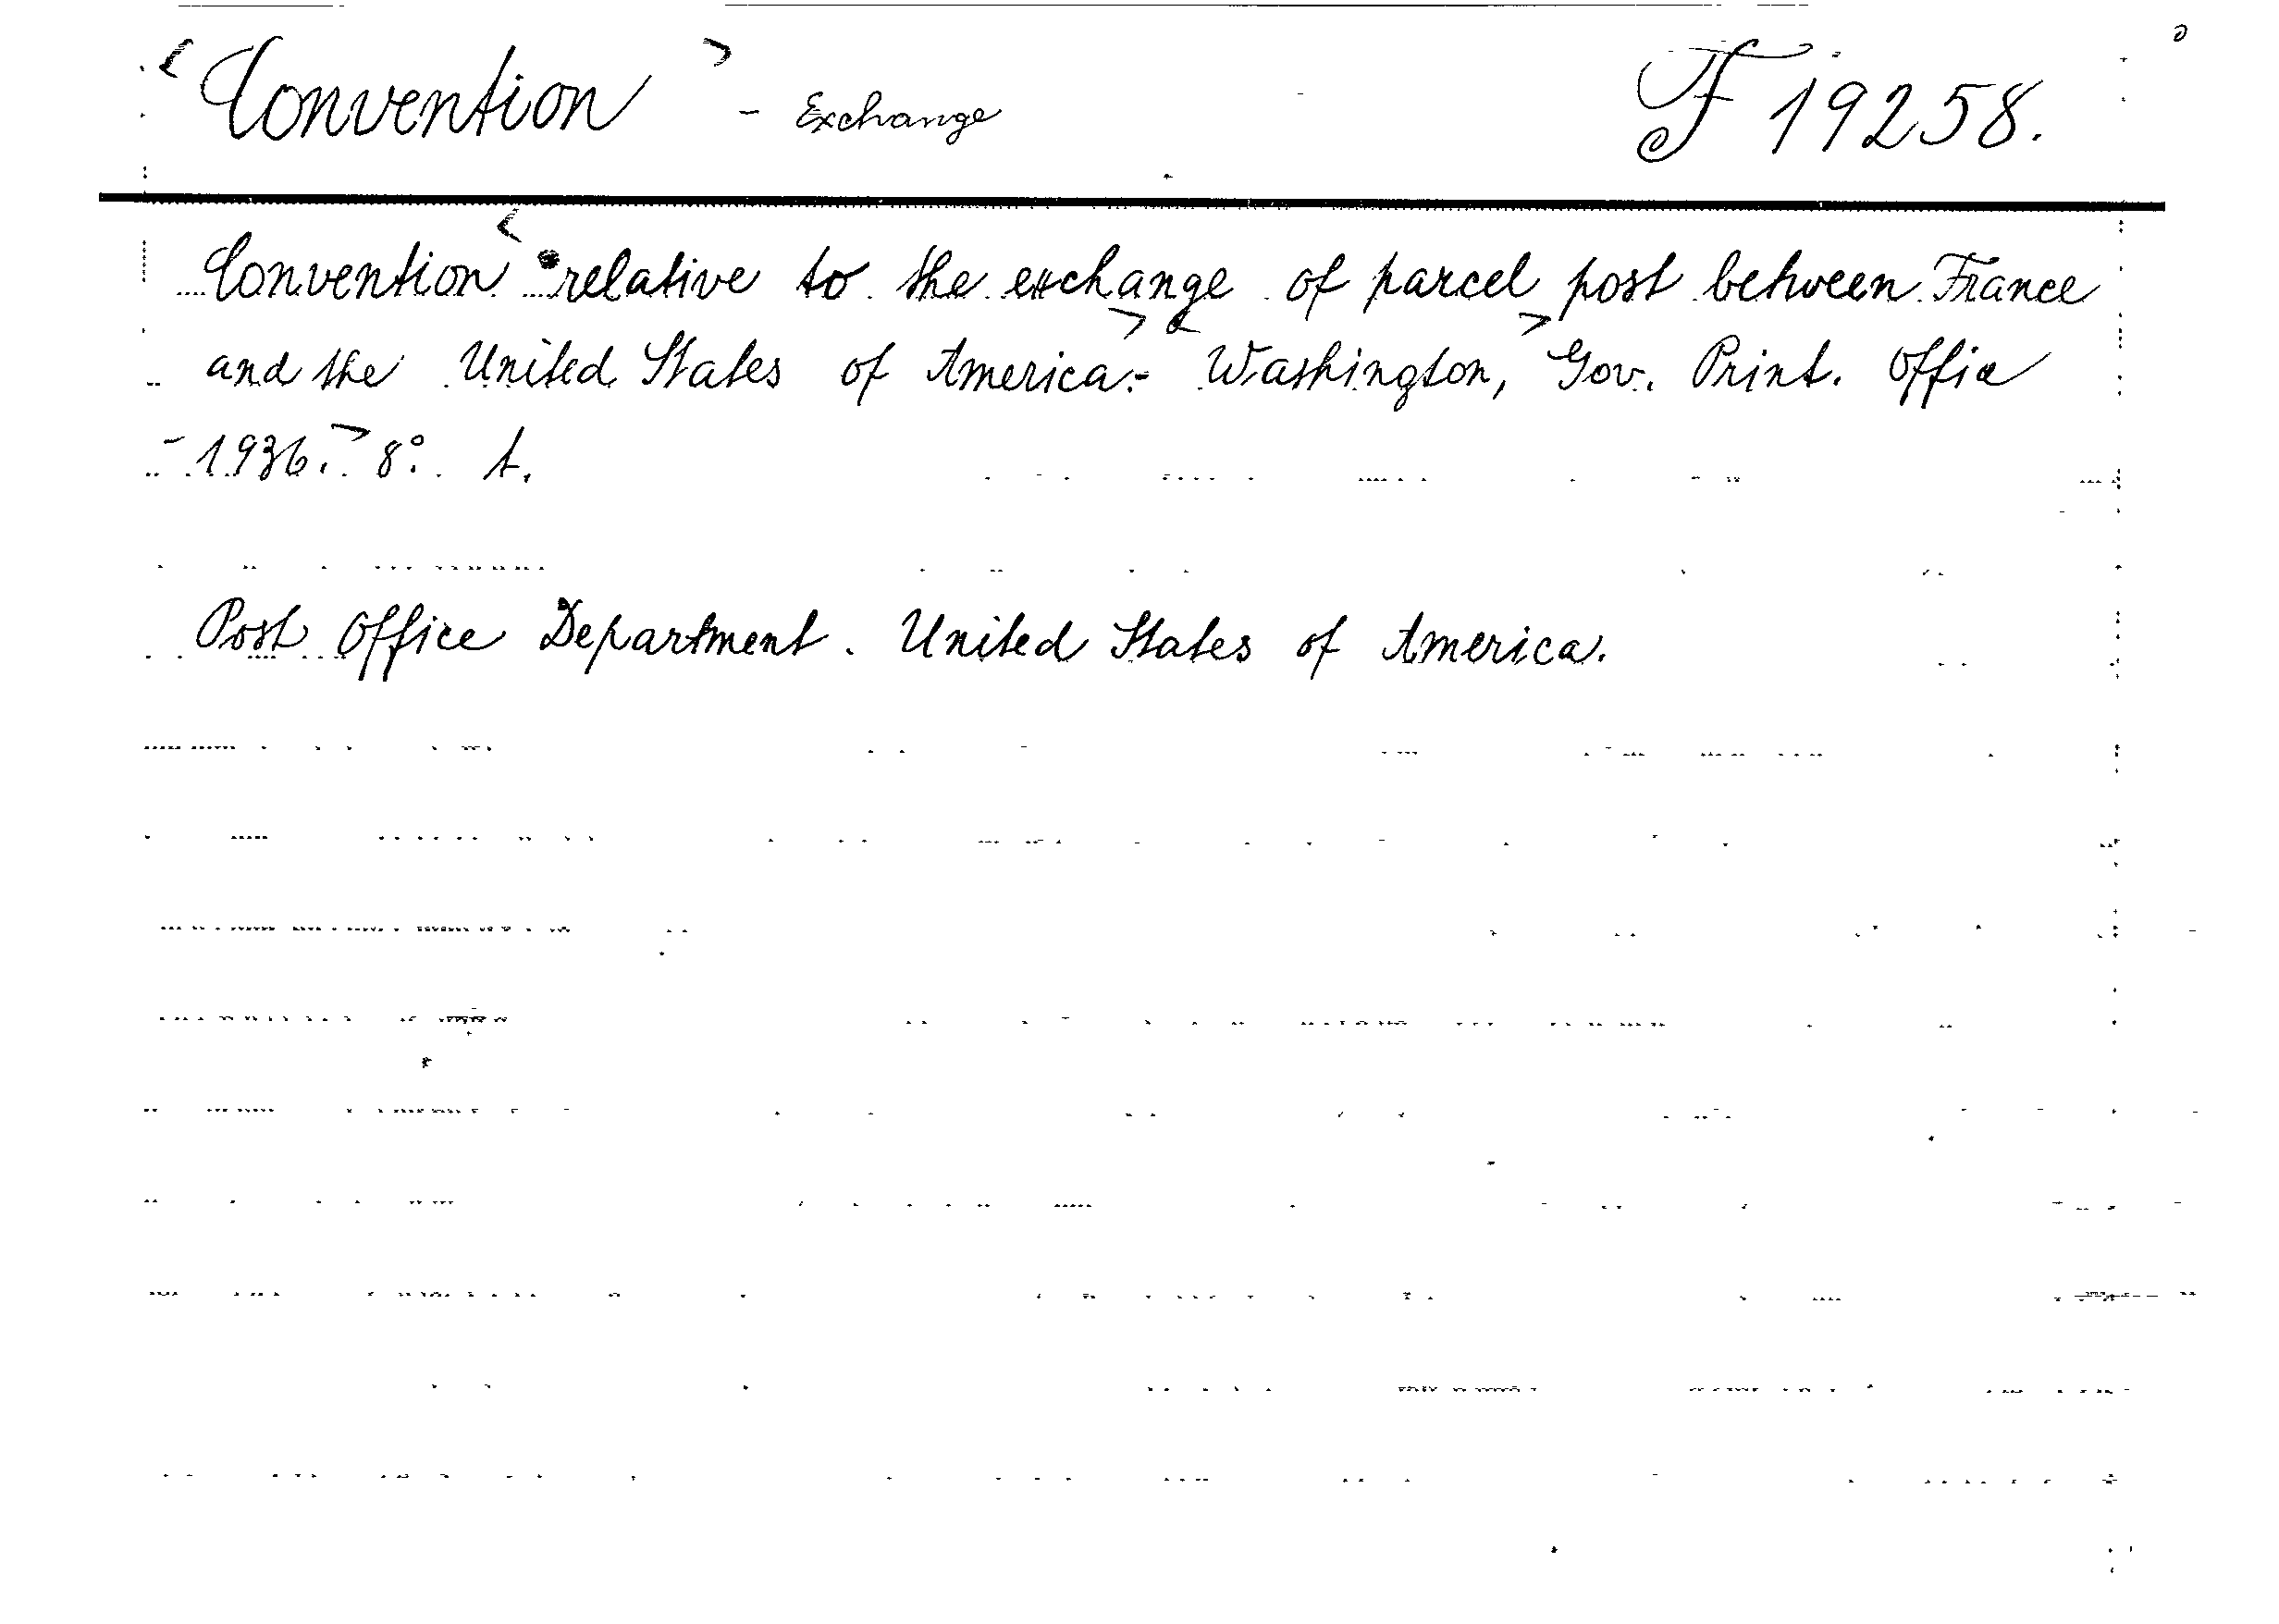 < Convention > - Exchange F 19258.
Convention < relative to the exchange of parcel post between France
and the United States of America. > - < Washington, > Gov. Print. Office
- 1936. > 8°. t.
Post Office Department. United States of America.